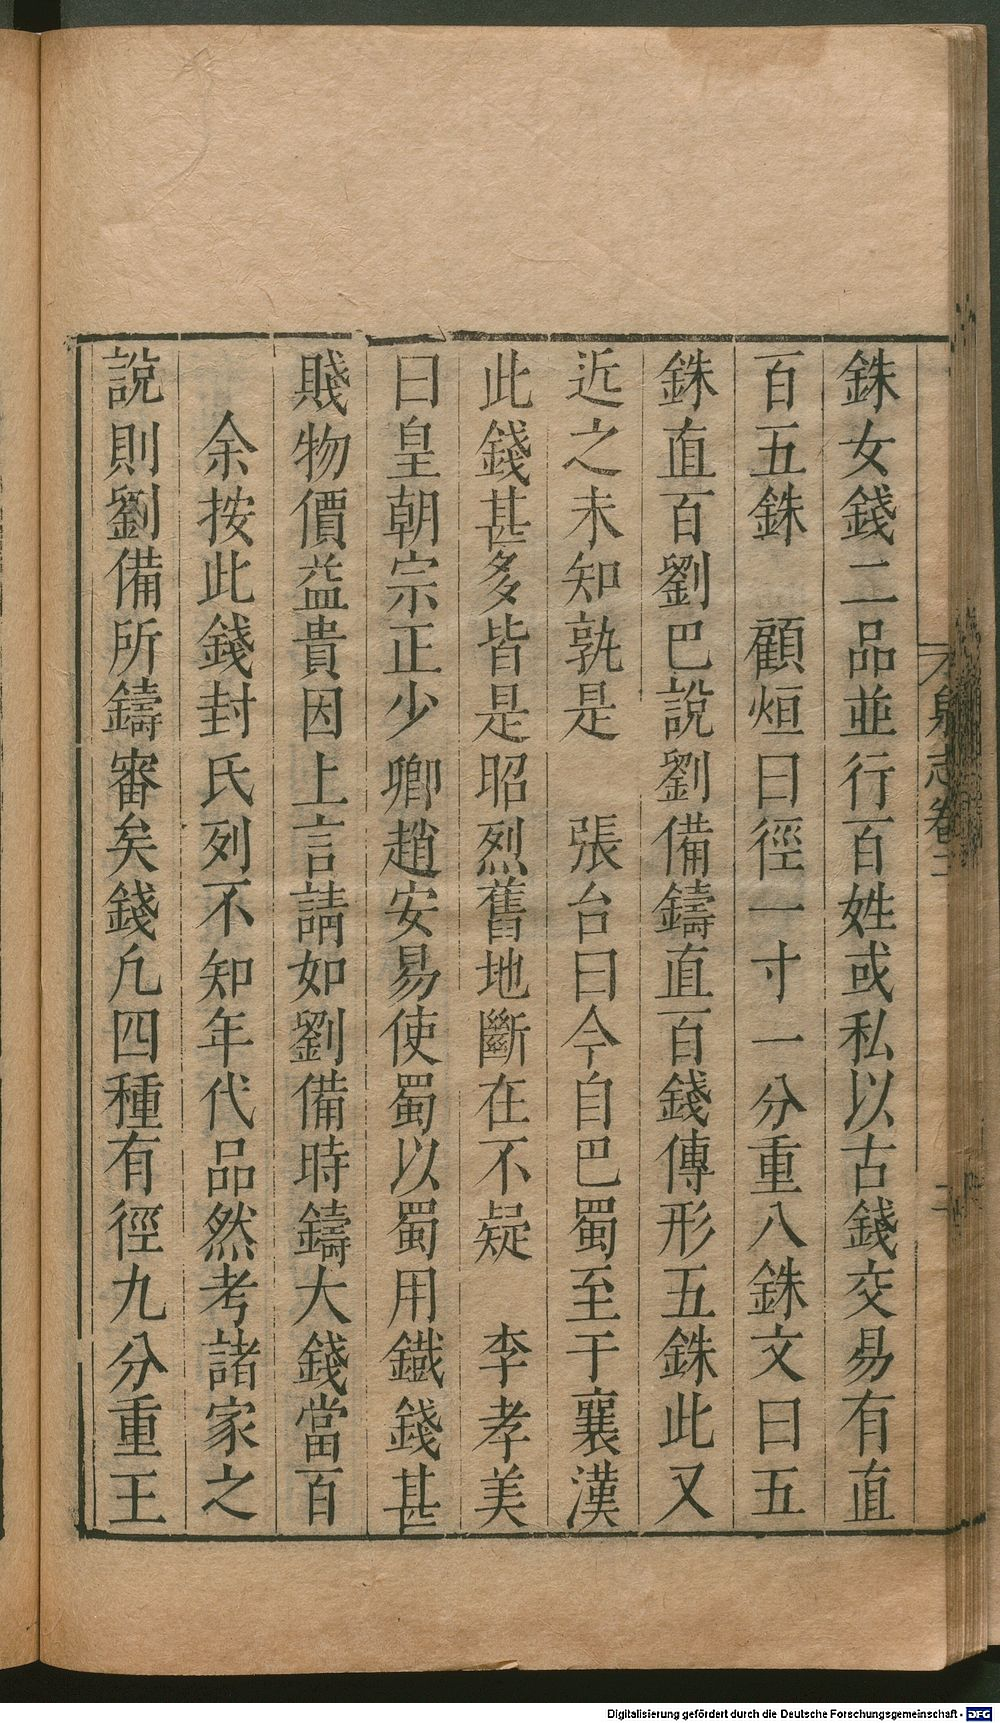 泉志卷二
二
銖女錢二品並行百姓或私以古錢交易有直
百五銖　顧烜曰徑一寸一分重八銖文曰五
銖直百劉巴說劉備鑄直百錢傳形五銖此又
近之未知孰是　張台曰今自巴蜀至于襄漢
此錢甚多皆是昭烈舊地斷在不疑　李孝美
曰皇朝宗正少卿趙安易使蜀以蜀用鐵錢甚
賤物價益貴因上言請如劉備時鑄大錢當百
余按此錢封氏列不知年代品然考諸家之
說則劉備所鑄審矣錢凢四種有徑九分重王
Digitalisierung gefördert durch die Deutsche Forschungsgemeinschaft - DFG